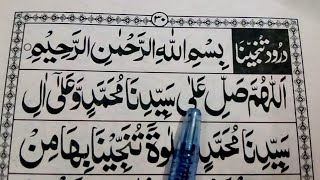 ٣٠
درود تنجینا
بِسْمِ اللهِ الرَّحْمٰنِ الرَّحِيْمِ
اَللّٰهُمَّ صَلِّ عَلٰى سَيِّدِنَا مُحَمَّدٍ وَّعَلٰٓى اٰلِ
سَيِّدِنَا مُحَمَّدٍ صَلٰوةً تُنَجِّيْنَا بِهَا مِنْ